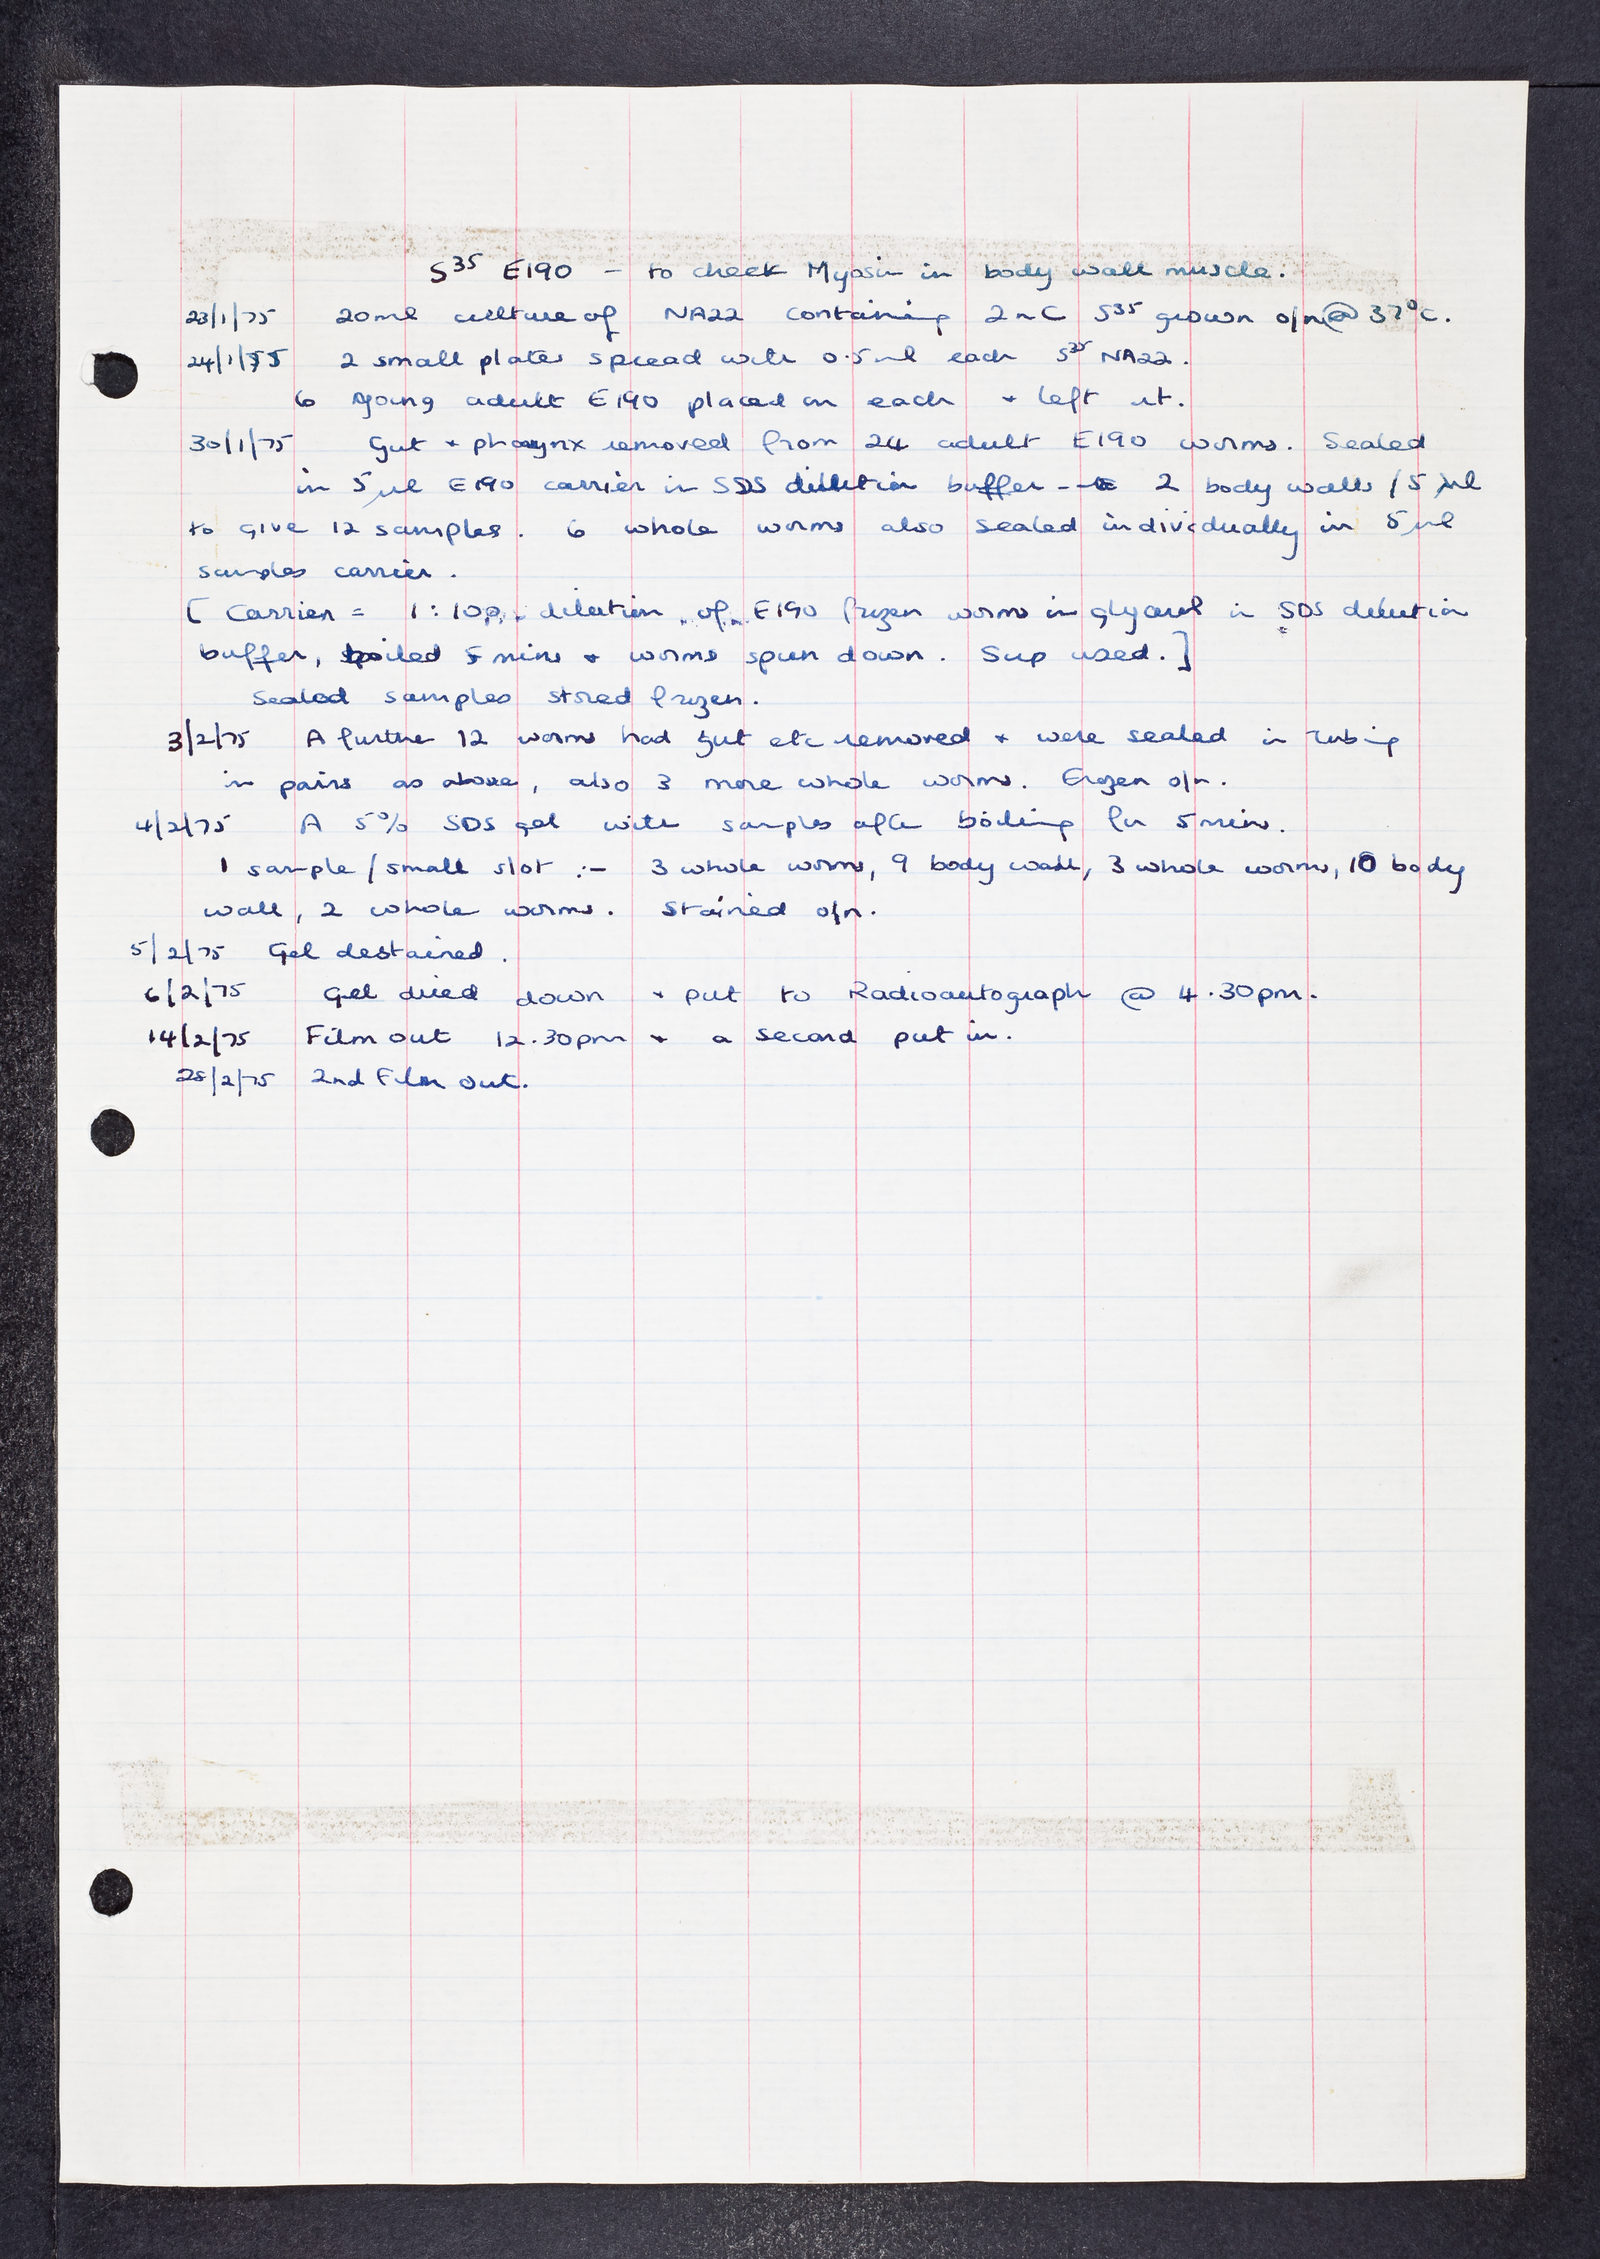 S³⁵ E190 – to check Myosin in body wall muscle.
23/1/75 20ml culture of NA22 containing 2mC S³⁵ grown o/n @ 37°C.
24/1/75 2 small plates spread with 0.5ml each S³⁵ NA22.
6 young adult E190 placed on each + left rt.
30/1/75 Gut + pharynx removed from 24 adult E190 worms. Sealed
in 5μl E190 carrier in SDS dilution buffer -- 2 body walls / 5 μl
to give 12 samples. 6 whole worms also sealed individually in 5μl
samples carrier.
[ Carrier = 1:100 dilution of E190 frozen worms in glycerol in SDS dilution
buffer, boiled 5 mins + worms spun down. Sup used. ]
Sealed samples stored frozen.
3/2/75 A further 12 worms had gut etc removed + were sealed in tubing
in pairs as above, also 3 more whole worms. Frozen o/n.
4/2/75 A 5% SDS gel with samples after boiling for 5 mins.
1 sample / small slot :- 3 whole worms, 9 body wall, 3 whole worms, 10 body
wall, 2 whole worms. Stained o/n.
5/2/75 Gel destained.
6/2/75 Gel dried down + put to Radioautograph @ 4.30pm.
14/2/75 Film out 12.30pm + a second put in.
28/2/75 2nd Film out.